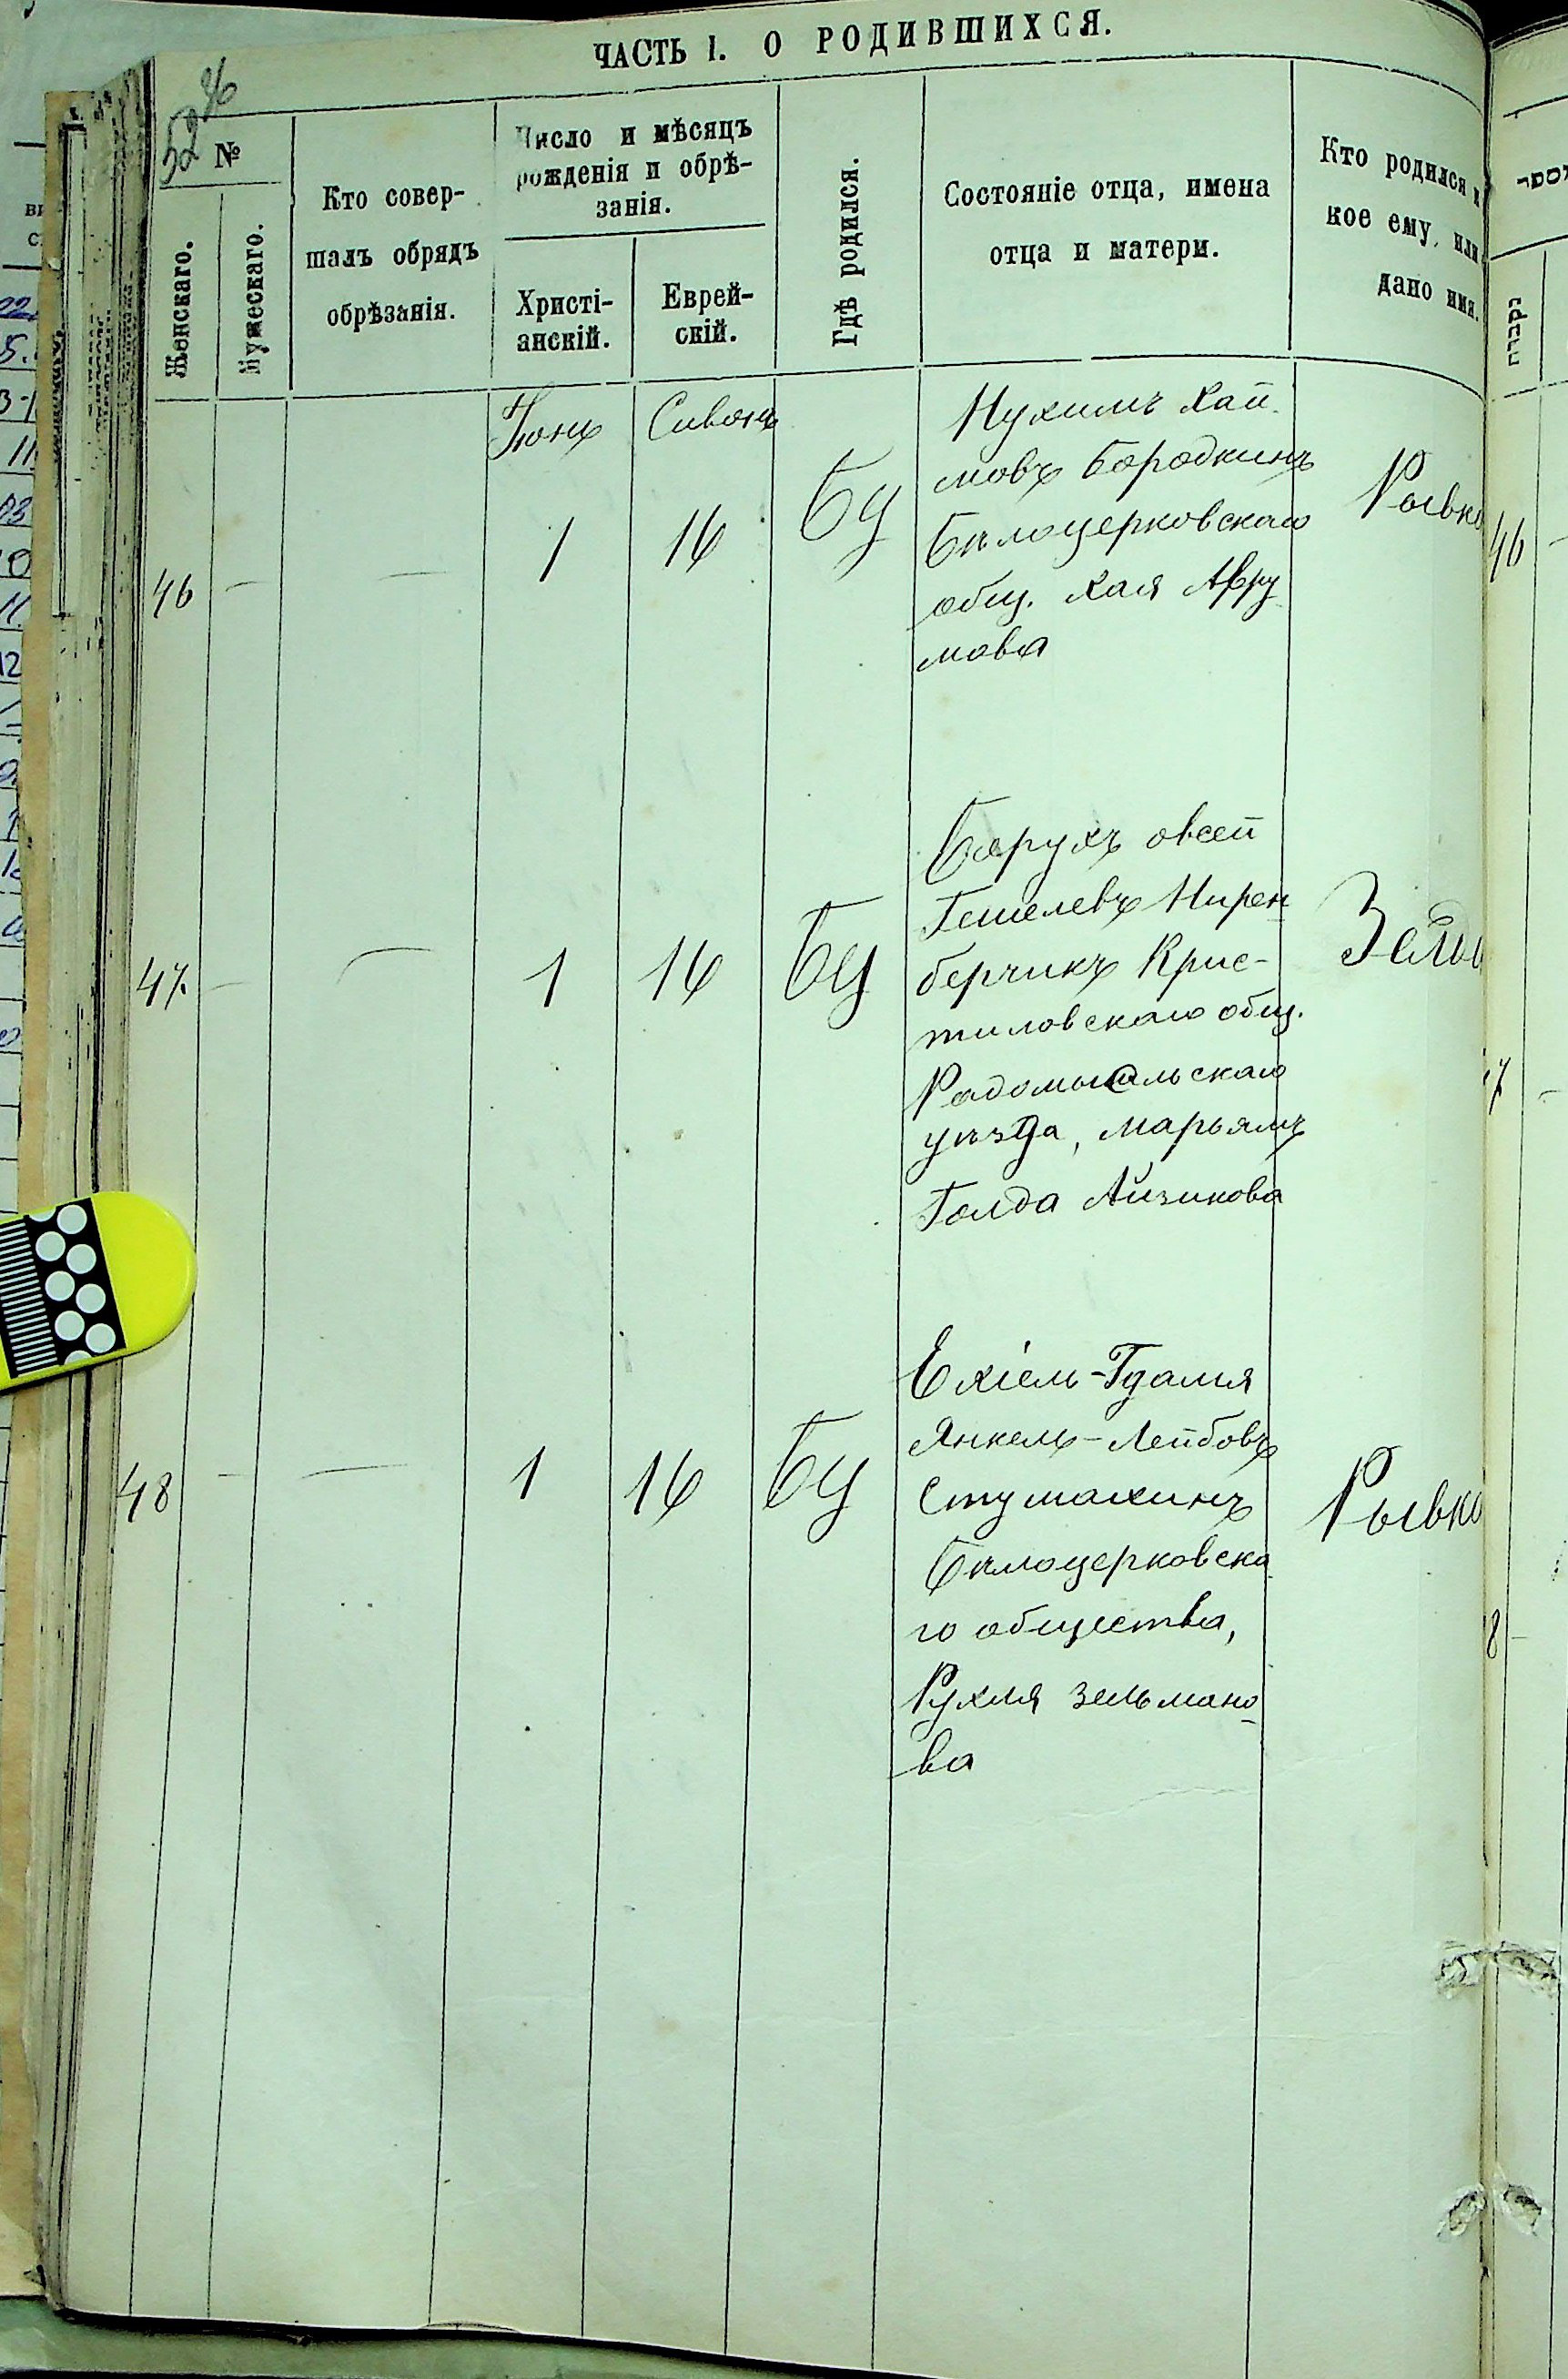 ЧАСТЬ I. О РОДИВШИХСЯ.
46
52
№
Женскаго.
Мужескаго.
Кто совер-
шалъ обрядъ
обрѣзанія.
Число и мѣсяцъ
рожденія и обрѣ-
занія.
Христі-
анскій.
Еврей-
скій.
Гдѣ родился.
Состояніе отца, имена
отца и матери.
Кто родился и
кое ему, или
дано имя.
נקבות
Іюнь Сивонъ
46 - — 1 16 БЦ
Нухимъ Хаи-
мовъ Бородкинъ
Бѣлоцерковскаго
общ. Хая Авру-
мова
Рывка
47. - — 1 16 БЦ
Борухъ Овсей
Гешелевъ Нирен-
берчикъ Крис-
тиловскаго общ.
Радомысльскаго
уѣзда, Марьямъ
Голда Айзикова
Зельд
48 - — 1 16 БЦ
Ехіель-Гдалія
Янкель-Лейбовъ
Стумахинъ
Бѣлоцерковска-
го общества,
Рухля Зельмано-
ва
Рывка
46 -